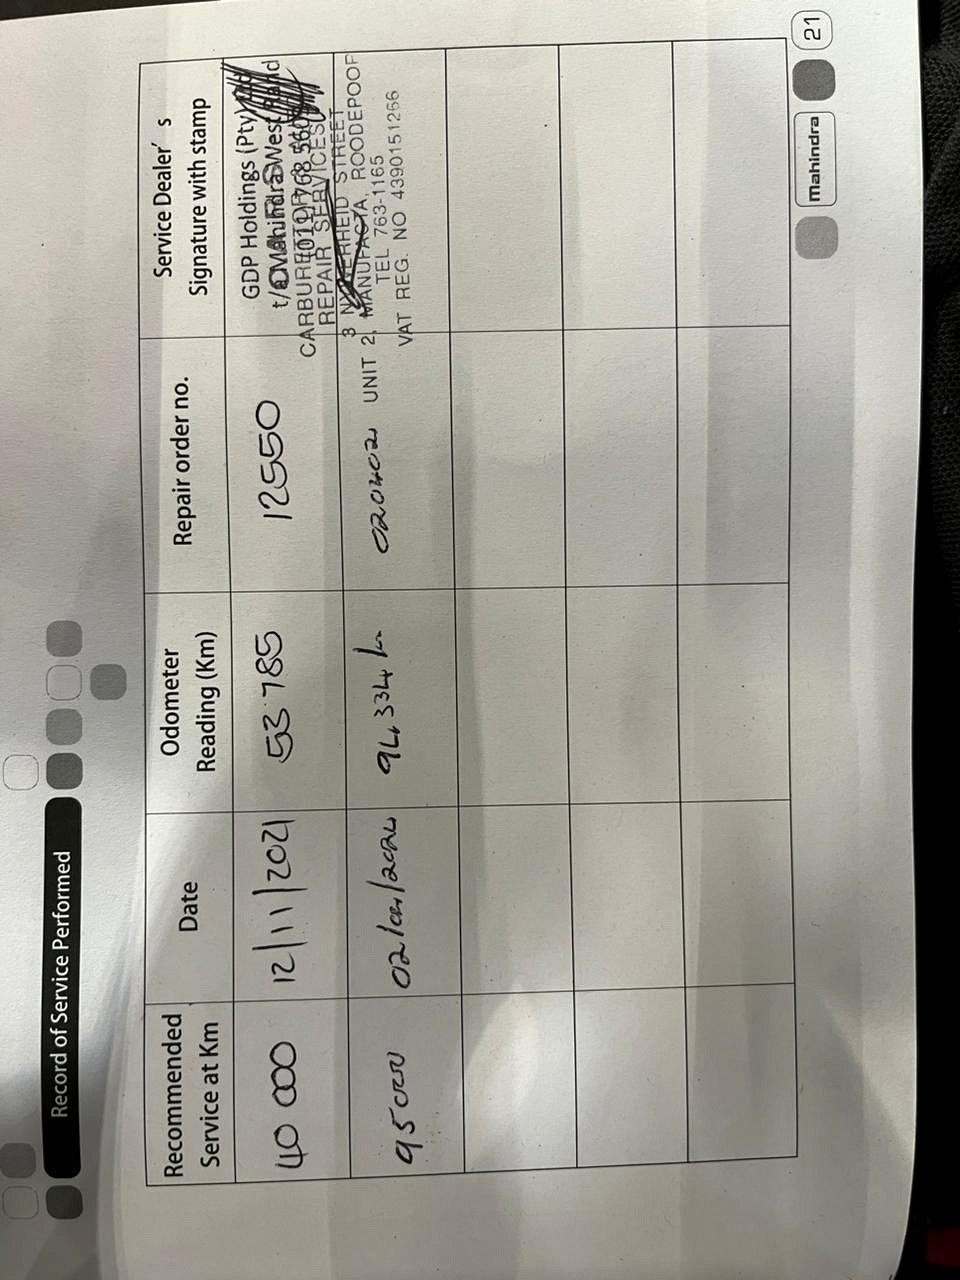 Record of Service Performed
Recommended Service at Km
Date
Odometer Reading (Km)
Repair order no.
Service Dealer's Signature with stamp
40 000
12/11/2021
53 785
12550
GDP Holdings (Pty)
t/a Mahindra West Rand
CARBURETTOR
REPAIR SERVICES
95000
94334 km
020402
3 STREET
UNIT 2, MANUFACTA, ROODEPOOR
TEL 763-1165
VAT REG. NO 4390151266
mahindra
21